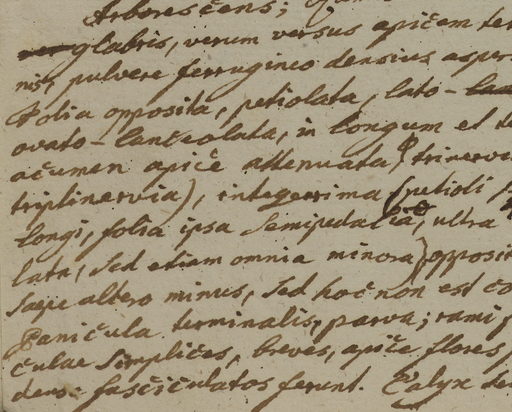 Arborescens;
glabris, verum versus apicem
nis, pulvere ferrugineo densius
Folia opposita, petiolata, lato-
ovato-lanceolata, in longum et
acumen apice attenuata (trinervia
triplinervia), integerrima (petioli
longi, folia ipsa semipedalia, ultra
lata, sed etiam omnia minora) opposit
saepe altero minus, sed hoc non est
Panicula terminalis, parva; rami
culae simplices, breves, apice flores
dens: fasciculatos ferunt. Calyx